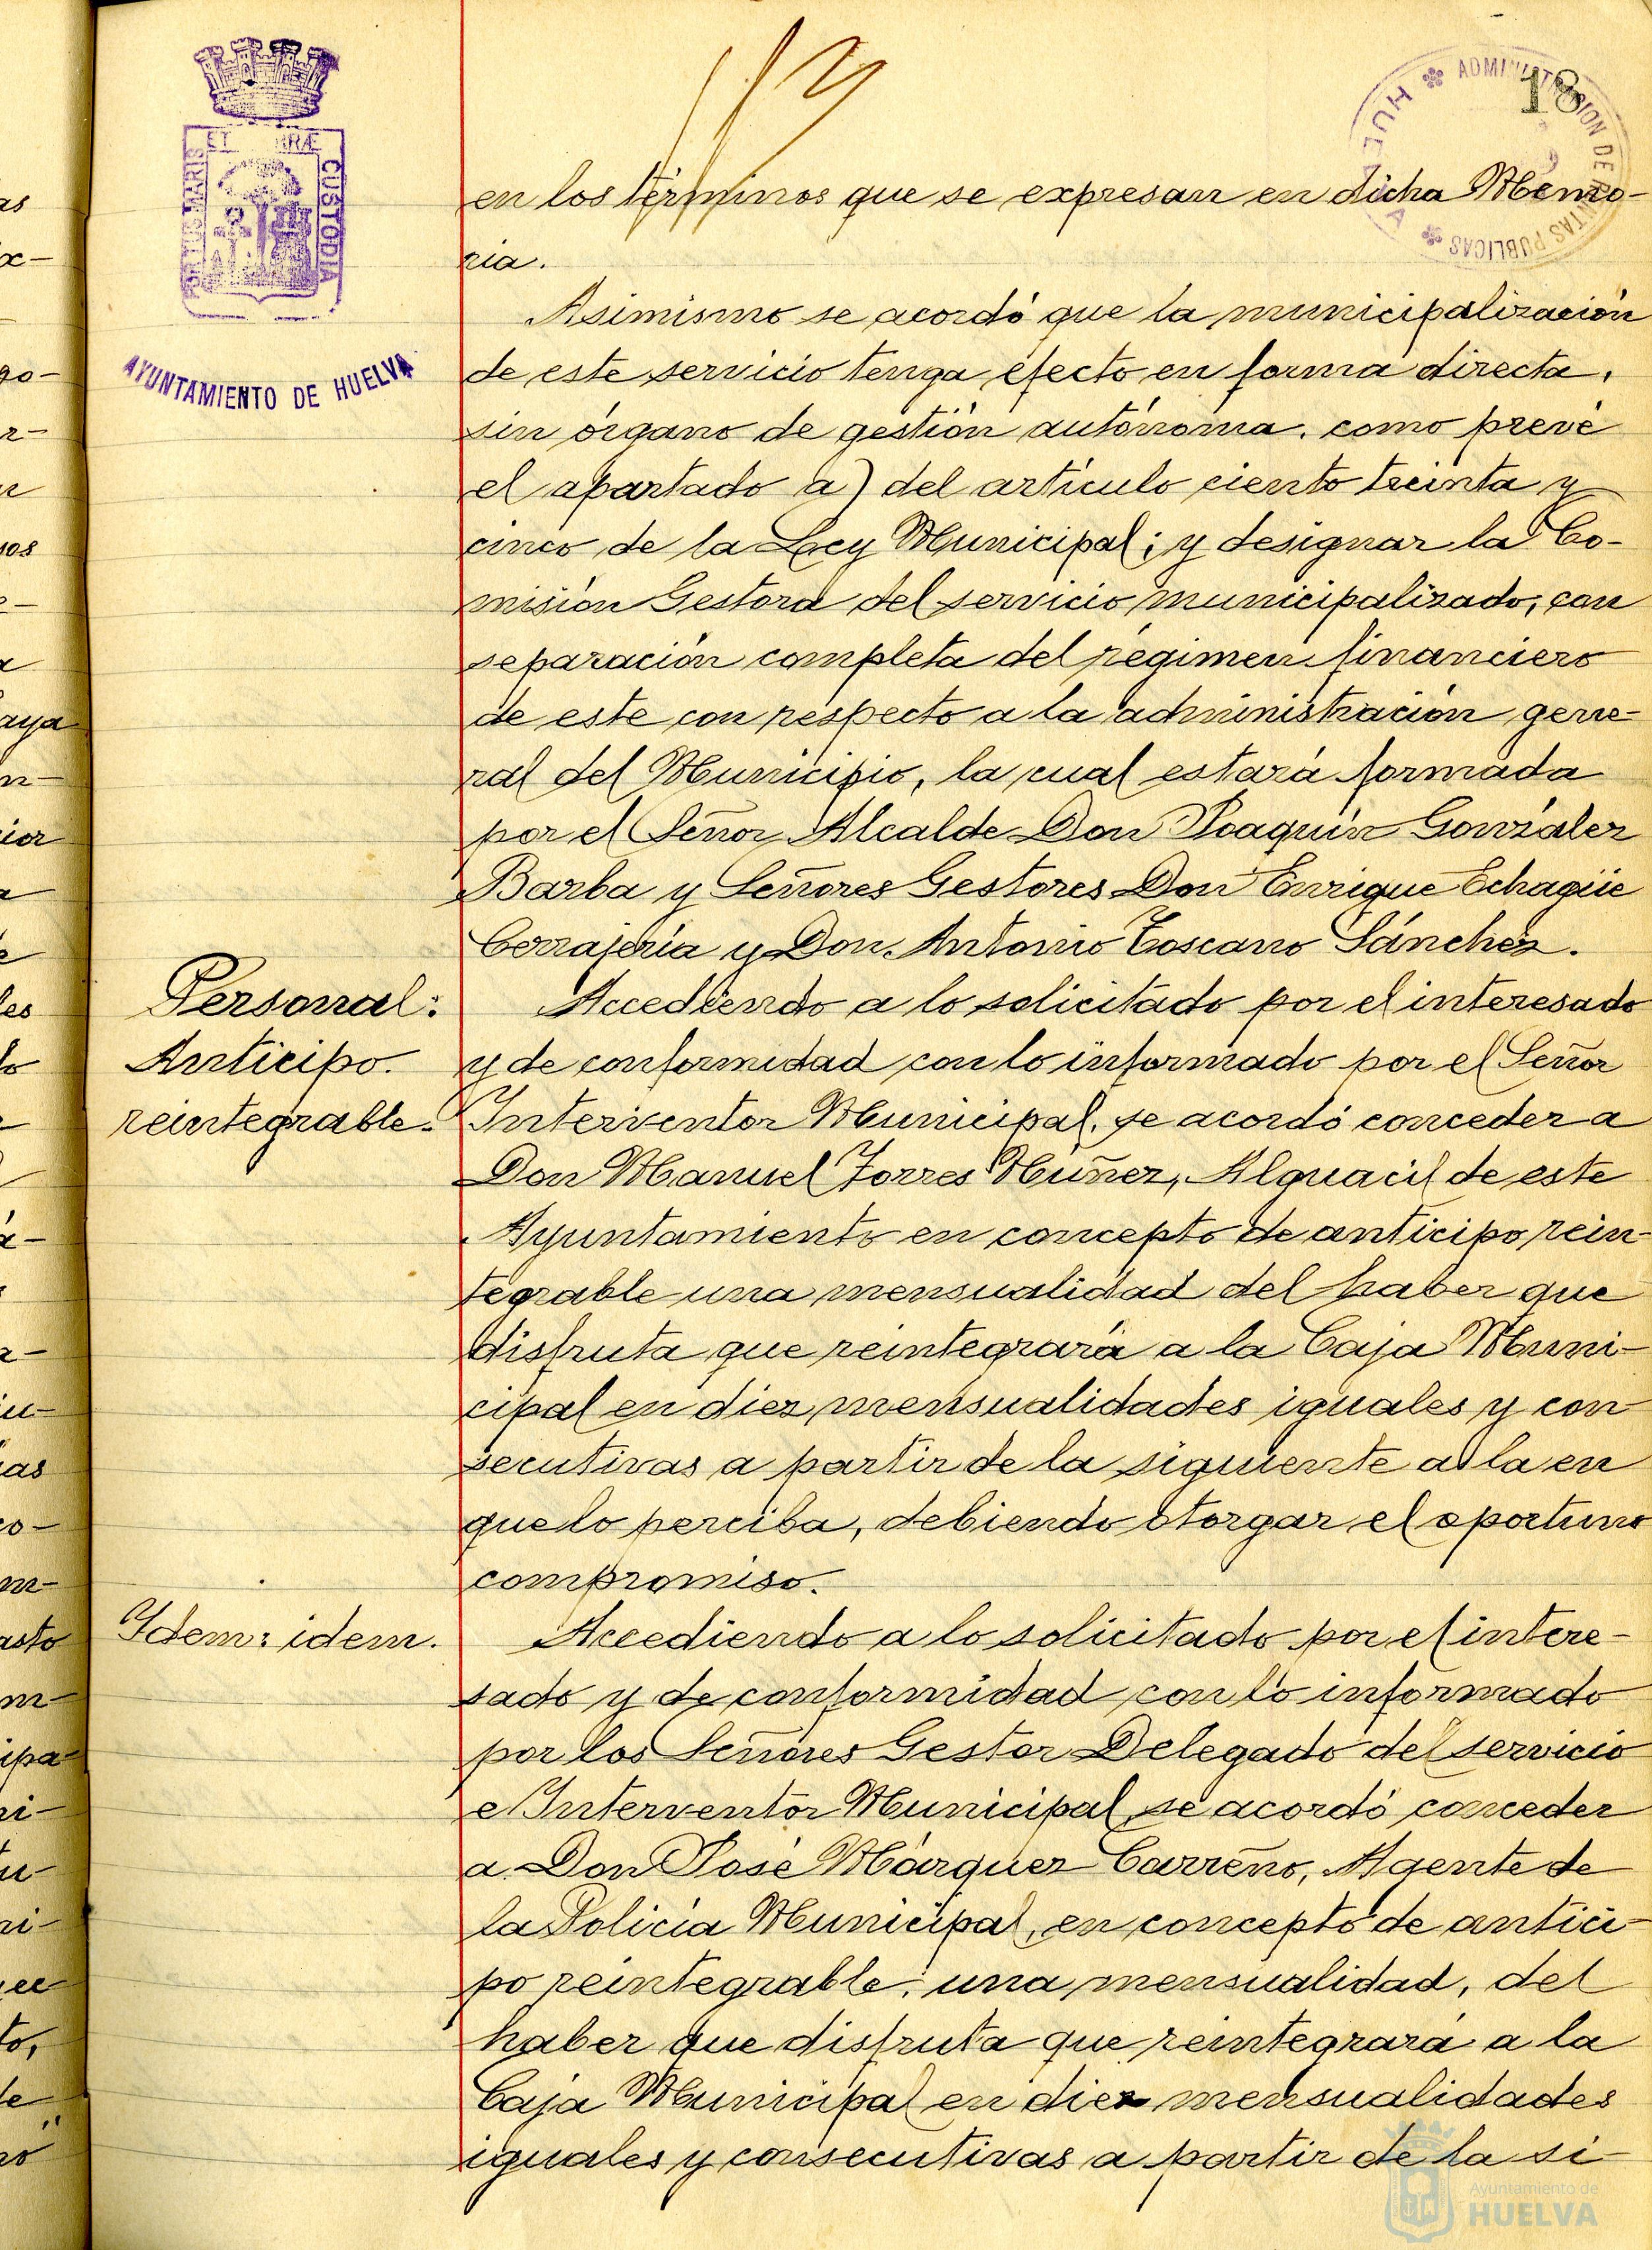 18
ADMINISTRACION DE RENTAS PUBLICAS
HUELVA
PORTUS MARIS ET TERRÆ CUSTODIA
AYUNTAMIENTO DE HUELVA
en los términos que se expresan en dicha Memo-
ria.
Asimismo se acordó que la municipalización
de este servicio tenga efecto en forma directa,
sin órgano de gestión autónoma, como prevé
el apartado a) del artículo ciento treinta y
cinco de la Ley Municipal; y designar la Co-
misión Gestora del servicio municipalizado, con
separación completa del régimen financiero
de este con respecto a la administración gene-
ral del Municipio, la cual estará formada
por el Señor Alcalde Don Joaquín González
Barba y Señores Gestores Don Enrique Echagüe
Cerrajería y Don Antonio Toscano Sánchez.
Personal:
Anticipo.
reintegrable.
Accediendo a lo solicitado por el interesado
y de conformidad con lo informado por el Señor
Interventor Municipal, se acordó conceder a
Don Manuel Torres Núñez, Alguacil de este
Ayuntamiento en concepto de anticipo rein-
tegrable una mensualidad del haber que
disfruta que reintegrará a la Caja Muni-
cipal en diez mensualidades iguales y con-
secutivas a partir de la siguiente a la en
que lo perciba, debiendo otorgar el oportuno
compromiso.
Idem: idem.
Accediendo a lo solicitado por el intere-
sado y de conformidad con lo informado
por los Señores Gestor Delegado del servicio
e Interventor Municipal se acordó conceder
a Don José Márquez Carreño, Agente de
la Policía Municipal, en concepto de antici-
po reintegrable, una mensualidad, del
haber que disfruta que reintegrará a la
Caja Municipal en diez mensualidades
iguales y consecutivas a partir de la si-
Ayuntamiento de
HUELVA